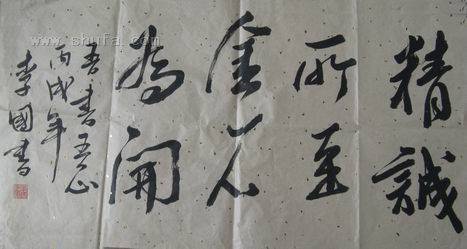 精誠
所至
金石
為開
吾書吾心
丙戌年
李國書
www.shufa.com